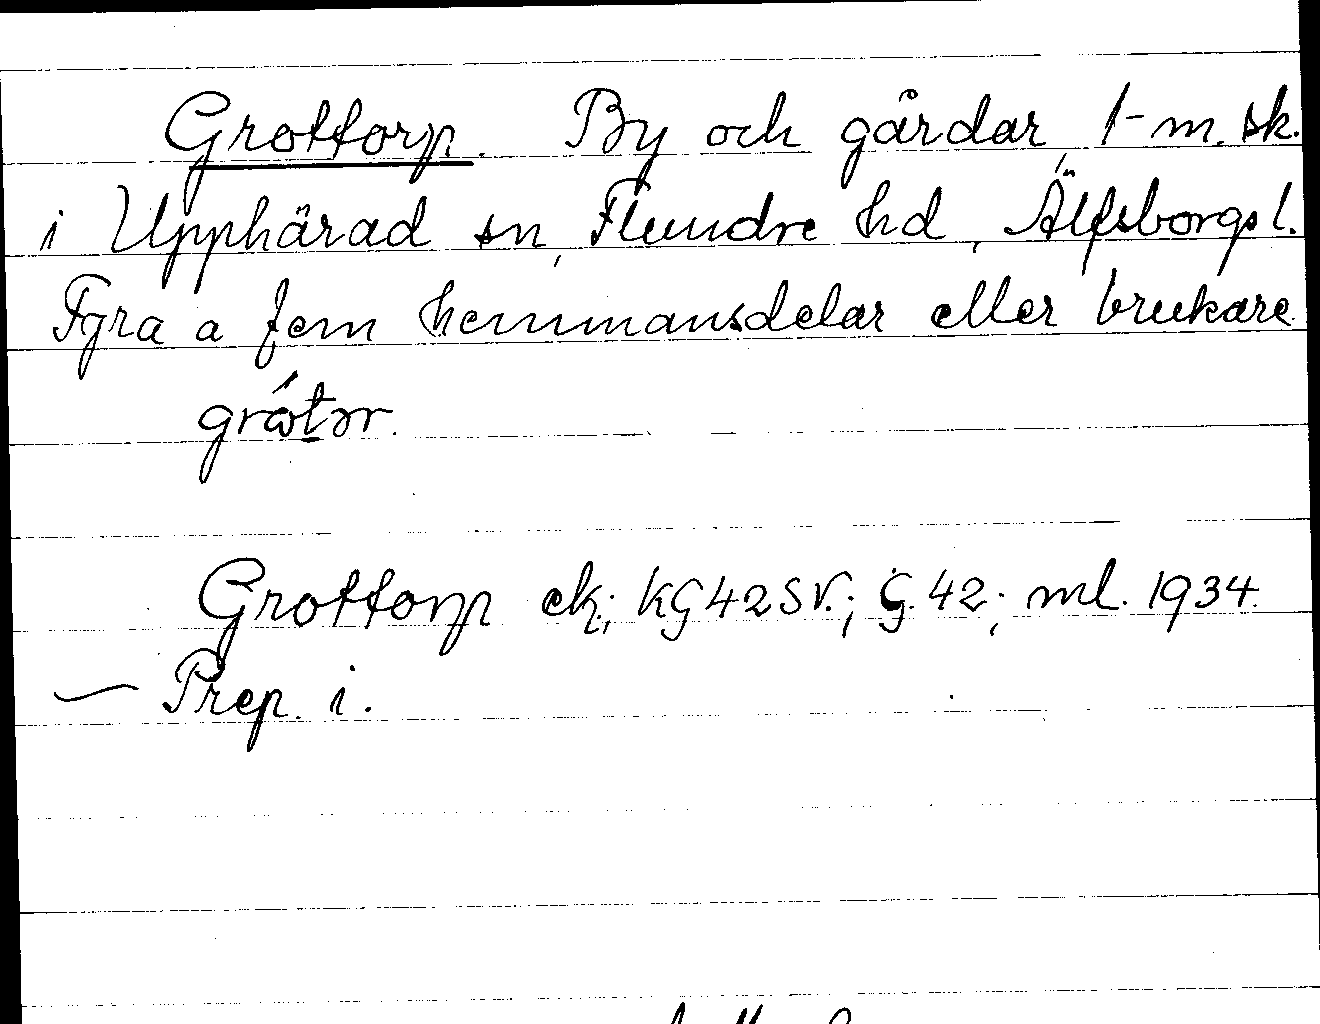 Grottorp. By och gårdar, 1 m. sk.
i Upphärad sn, Flundre hd, Älfsborgs l.
Fyra a fem hemmansdelar eller brukare.
Grottorp ek; KG42SV.; G. 42; ml. 1934.
— Prep. i.